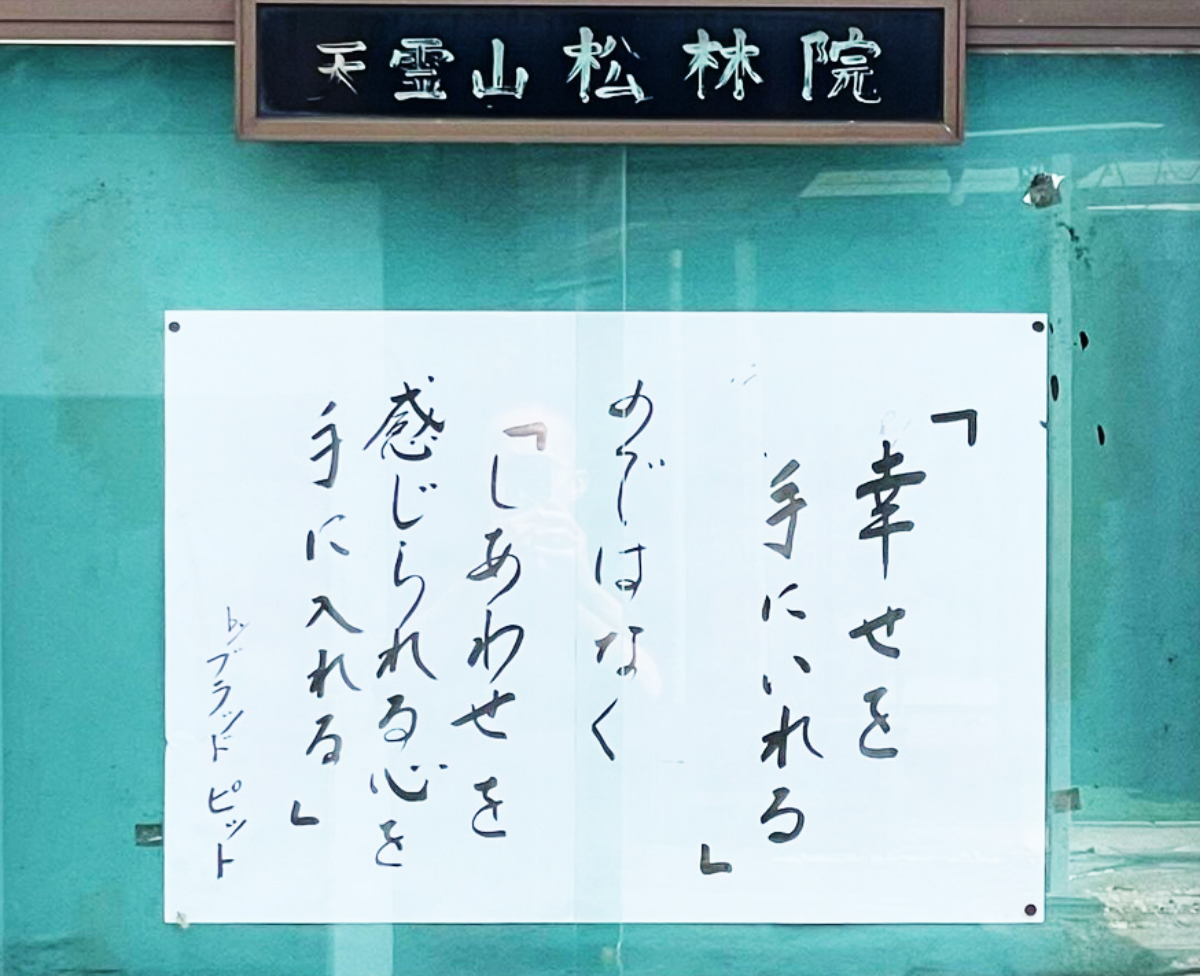 天霊山松林院
「幸せを
手にいれる」
のではなく
「しあわせを
感じられる心を
手に入れる」
by ブラッド ピット